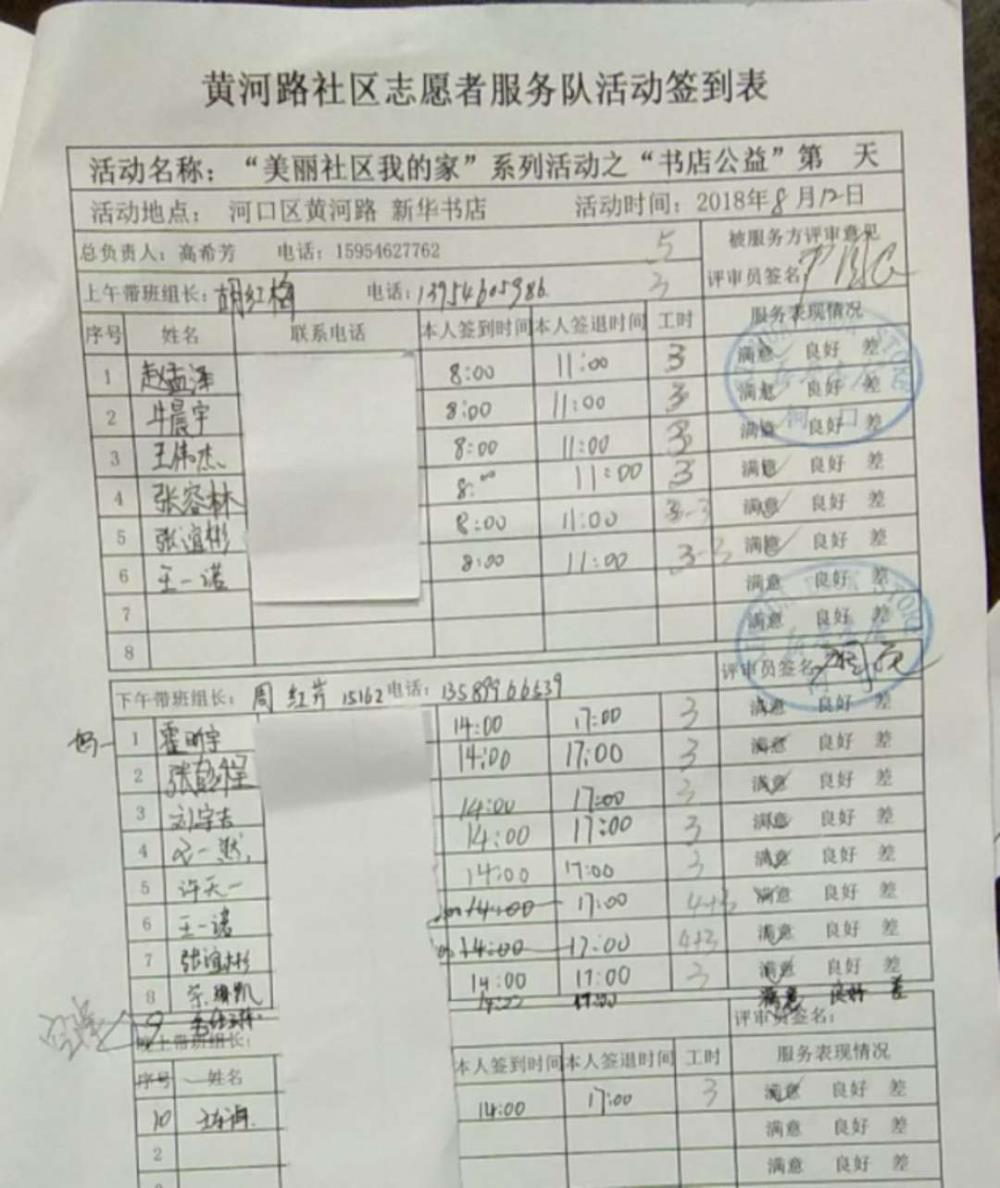 黄河路社区志愿者服务队活动签到表
活动名称：“美丽社区我的家”系列活动之“书店公益”第 天
活动地点： 河口区黄河路 新华书店 活动时间：2018年8月12日
总负责人：高希芳 电话：15954627762 5 被服务方评审意见
上午带班组长：胡红梅 电话：13954605986 3 评审员签名
序号 姓名 联系电话 本人签到时间 本人签退时间 工时 服务表现情况
1 赵孟泽 8:00 11:00 3 满意✓ 良好 差
2 牛晨宇 8:00 11:00 3 满意✓ 良好 差
3 王伟杰 8:00 11:00 3 满意✓ 良好 差
4 张容林 8:00 11:00 3 满意✓ 良好 差
5 张谊彬 8:00 11:00 3-3 满意✓ 良好 差
6 王一诺 8:00 11:00 3-3 满意✓ 良好 差
7 满意 良好 差
8 满意 良好 差
下午带班组长： 周红岸 15162 电话：13589966639 评审员签名
1 霍明宇 14:00 17:00 3 满意 良好 差
2 张 14:00 17:00 3 满意 良好 差
3 刘宇吉 14:00 17:00 3 满意 良好 差
4 一 14:00 17:00 3 满意 良好 差
5 许天一 14:00 17:00 3 满意 良好 差
6 王一诺 14:00 17:00 4+3 满意 良好 差
7 张谊彬 14:00 17:00 4+3 满意 良好 差
8 凯 14:00 17:00 3 满意 良好 差
9 17:00 满意 良好 差
晚上带班组长： 评审员签名：
序号 姓名 本人签到时间 本人签退时间 工时 服务表现情况
10 14:00 17:00 3 满意 良好 差
2 满意 良好 差
满意 良好 差